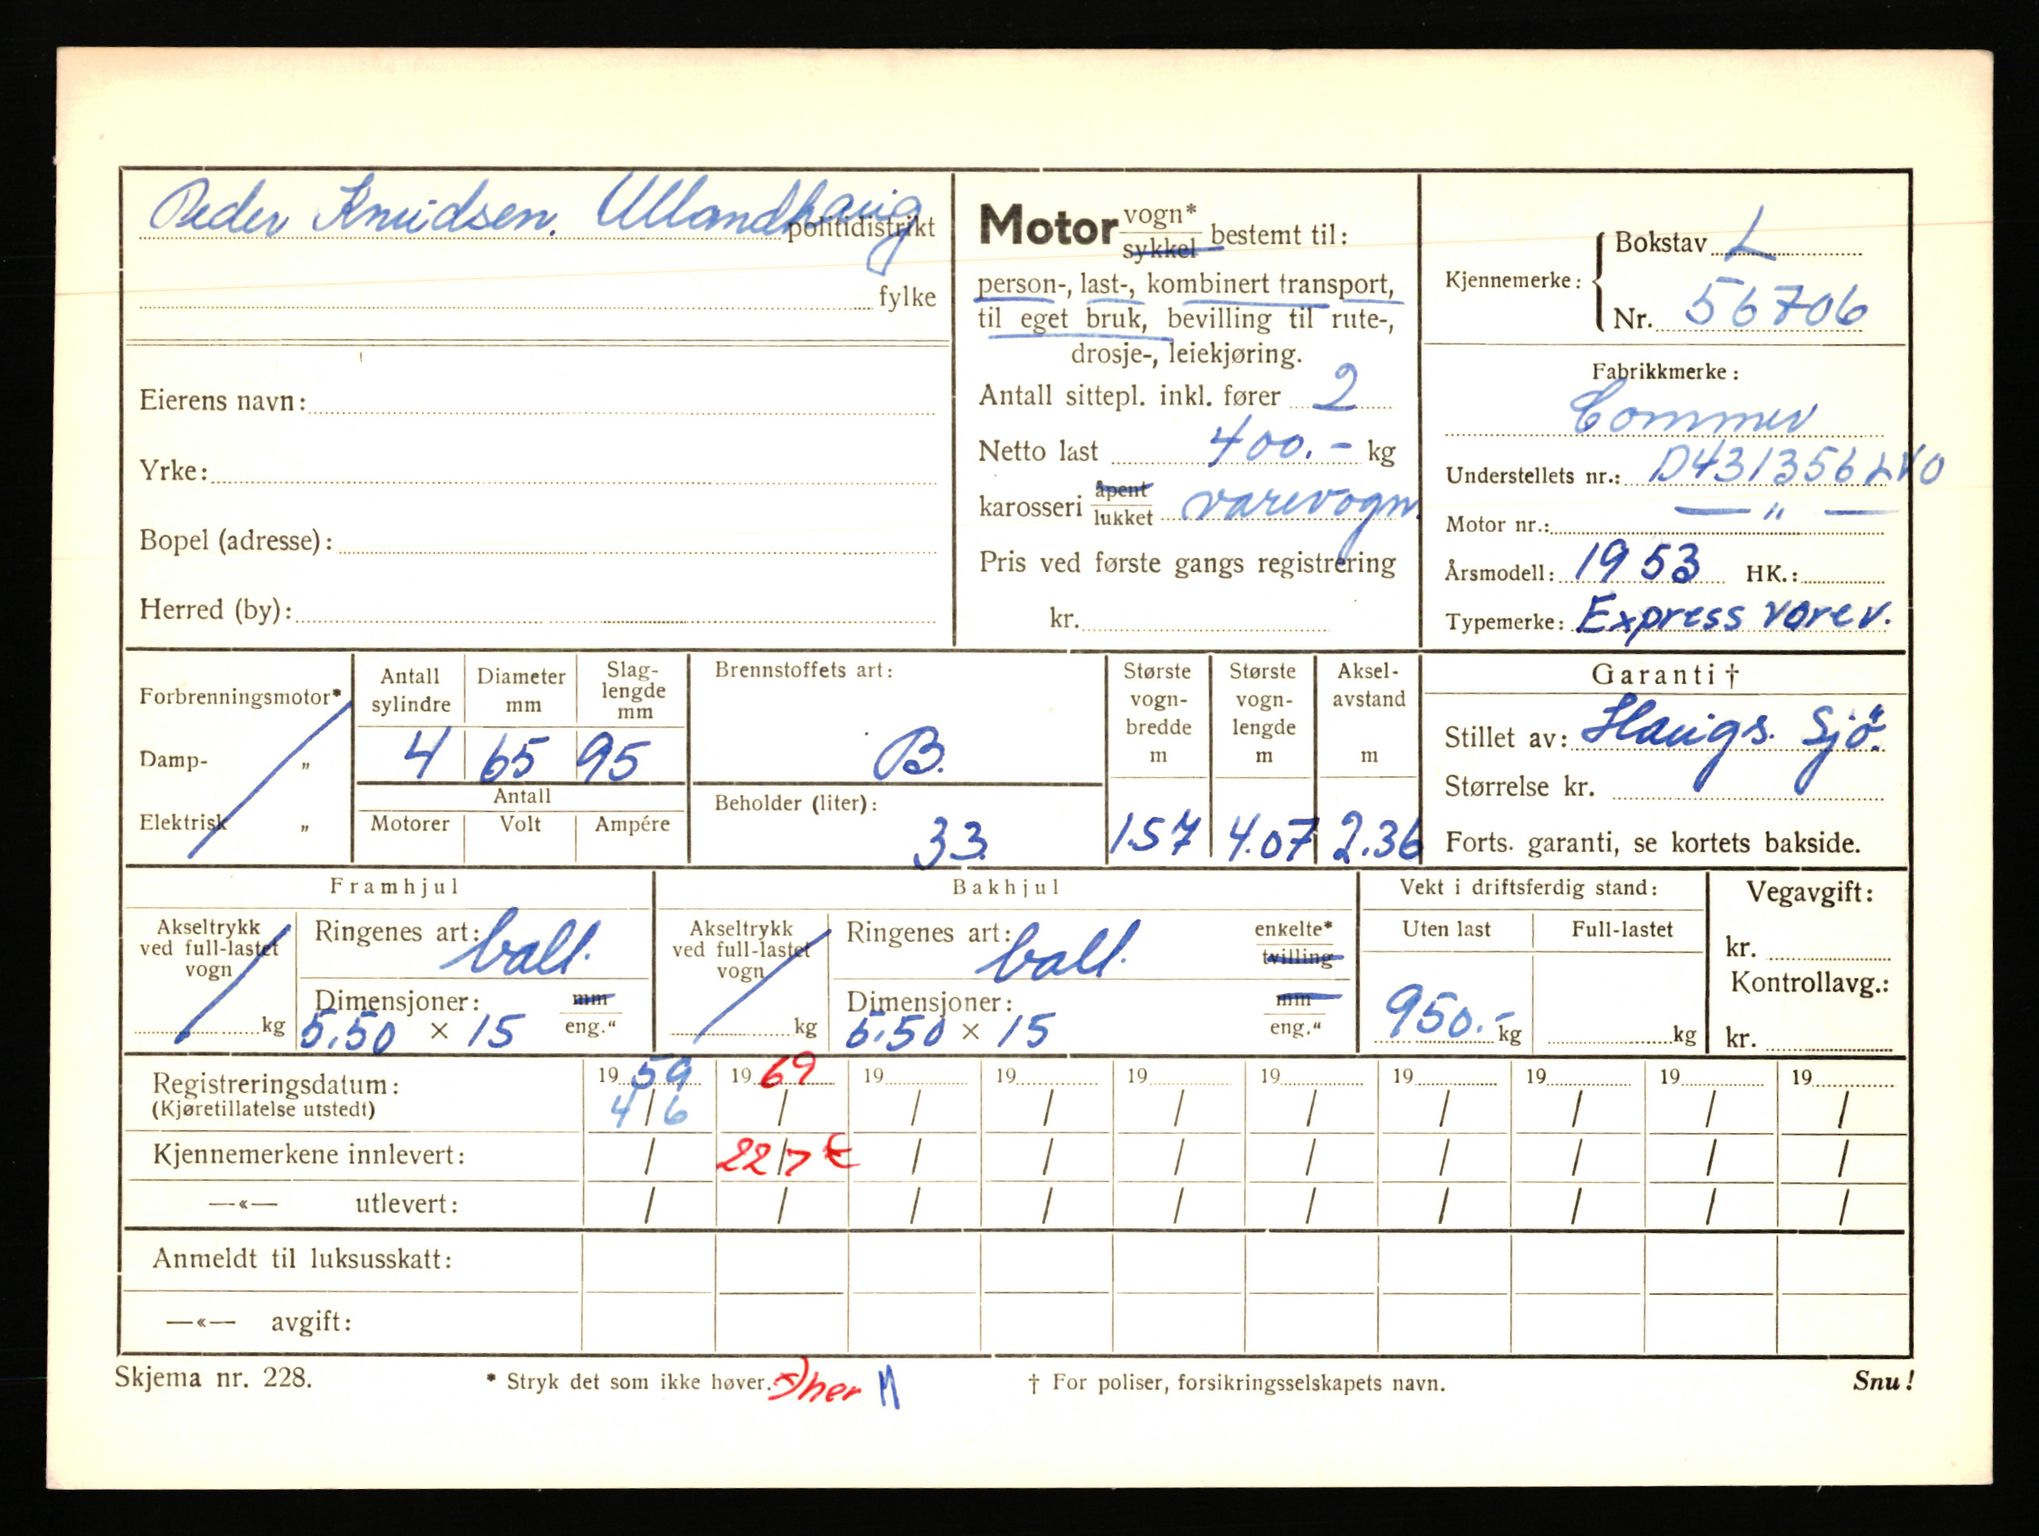 Peder Knudsen. Ullandhaug politidistrikt
fylke
Eierens navn:
Yrke:
Bopel (adresse):
Herred (by):
Motor vogn* sykkel bestemt til:
person-, last-, kombinert transport,
til eget bruk, bevilling til rute-,
drosje-, leiekjøring.
Antall sittepl. inkl. fører 2
Netto last 400.- kg
karosseri åpent lukket varevogn.
Pris ved første gangs registrering
kr.
Kjennemerke: Bokstav L
Nr. 56706
Fabrikkmerke:
Commer
Understellets nr.: D431356LVO
Motor nr.: — " —
Årsmodell: 1953 HK.:
Typemerke: Express varev.
Forbrenningsmotor*
Damp- "
Elektrisk "
Antall sylindre
Diameter mm
Slag-lengde mm
4 65 95
Antall
Motorer Volt Ampére
Brennstoffets art:
B.
Beholder (liter):
33
Største vogn-bredde m
1.57
Største vogn-lengde m
4.07
Aksel-avstand m
2.36
Garanti †
Stillet av: Haugs. Sjø.
Størrelse kr.
Forts. garanti, se kortets bakside.
Framhjul
Akseltrykk
ved full-lastet
vogn
kg
Ringenes art: ball.
Dimensjoner: mm
5.50 × 15 eng."
Bakhjul
Akseltrykk
ved full-lastet
vogn
kg
Ringenes art: ball. enkelte* tvilling
Dimensjoner: mm
5.50 × 15 eng."
Vekt i driftsferdig stand:
Uten last Full-lastet
950.- kg kg
Vegavgift:
kr.
Kontrollavg.:
kr.
Registreringsdatum: 19 59 19 69 19 19 19 19 19 19 19 19
(Kjøretillatelse utstedt) 4/6 / / / / / / / / /
Kjennemerkene innlevert: / 22/7 / / / / / / / /
—«— utlevert: / / / / / / / / / /
Anmeldt til luksusskatt:
—«— avgift:
Skjema nr. 228. * Stryk det som ikke høver. her M † For poliser, forsikringsselskapets navn. Snu!